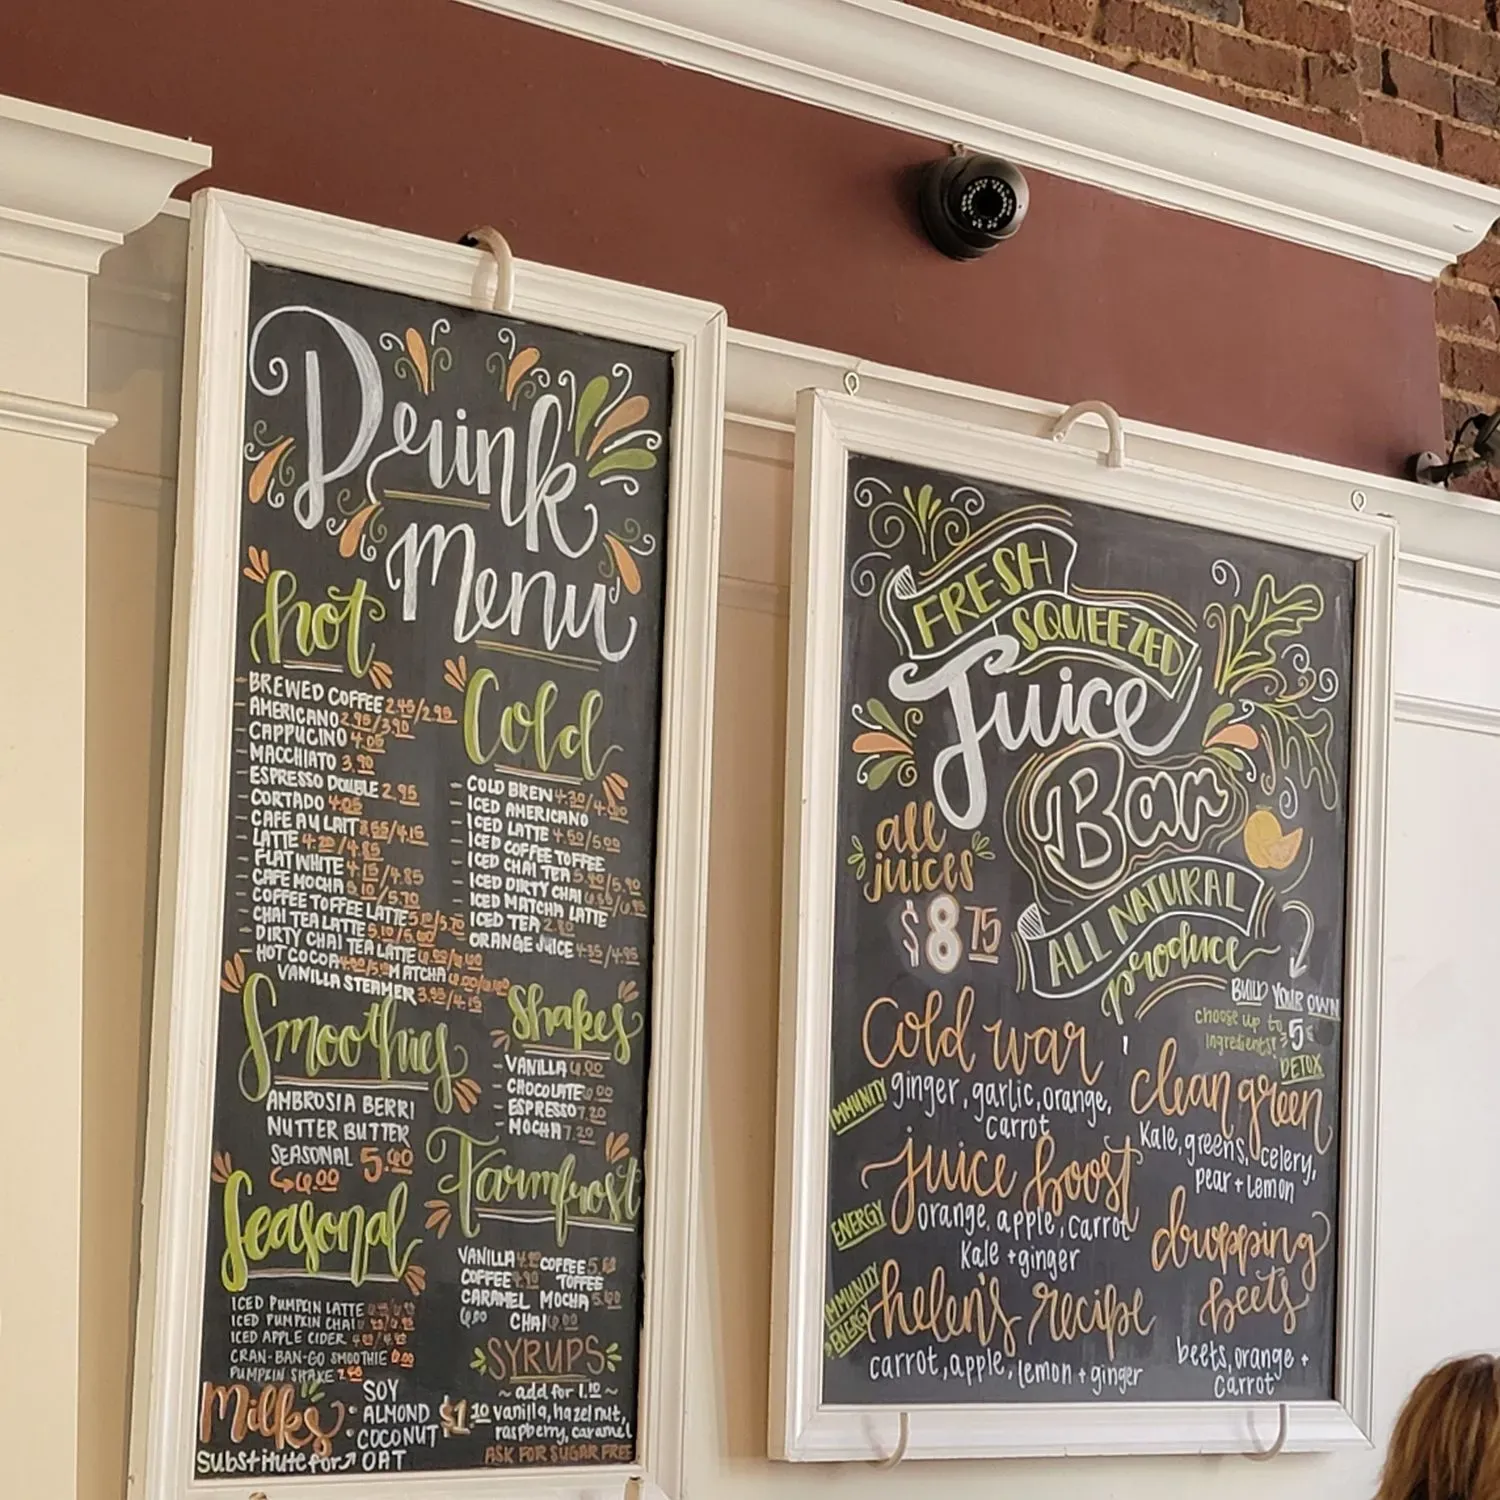 Drink
Menu
hot
- BREWED COFFEE 2.45/2.95
- AMERICANO 2.95/3.90
- CAPPUCINO 4.05
- MACCHIATO 3.90
- ESPRESSO DOUBLE 2.95
- CORTADO 4.05
- CAFE AU LAIT /4.15
- LATTE 4.20/4.85
- FLAT WHITE 4.15/4.85
- CAFE MOCHA 5.10/5.70
- COFFEE TOFFEE LATTE 5.10/5.70
- CHAI TEA LATTE 5.10/
- DIRTY CHAI TEA LATTE
- HOT COCOA MATCHA
VANILLA STEAMER 3.95/4.15
Cold
- COLD BREW 4.30/
- ICED AMERICANO
- ICED LATTE 4.50/5.00
- ICED COFFEE TOFFEE
- ICED CHAI TEA 5.40/5.90
- ICED DIRTY CHAI
- ICED MATCHA LATTE
- ICED TEA 2.80
- ORANGE JUICE 4.35/4.95
Smoothies
AMBROSIA BERRI
NUTTER BUTTER
SEASONAL 5.40
6.00
Shakes
- VANILLA 6.00
- CHOCOLATE 6.00
- ESPRESSO 7.20
- MOCHA 7.20
Seasonal
ICED PUMPKIN LATTE
ICED PUMPKIN CHAI
ICED APPLE CIDER
CRAN-BAN-GO SMOOTHIE 6.00
PUMPKIN SHAKE
Farmfrost
VANILLA COFFEE
COFFEE 4.90 TOFFEE
CARAMEL MOCHA
6.00 CHAI 6.00
SYRUPS
~ add for 1.10 ~
vanilla, hazelnut,
raspberry, caramel
ASK FOR SUGAR FREE
Milks
Substitute for
• SOY
• ALMOND $1.10
• COCONUT
OAT
FRESH
SQUEEZED
Juice
Bar
all
juices
$8.75
ALL NATURAL
produce
BUILD YOUR OWN
choose up to
5
ingredients!
Cold war
IMMUNITY
ginger, garlic, orange,
carrot
DETOX
clean green
Kale, greens, celery,
pear + lemon
juice boost
ENERGY
orange, apple, carrot
Kale + ginger
dropping
beets
beets, orange +
carrot
helen's recipe
IMMUNITY
ENERGY
carrot, apple, lemon + ginger